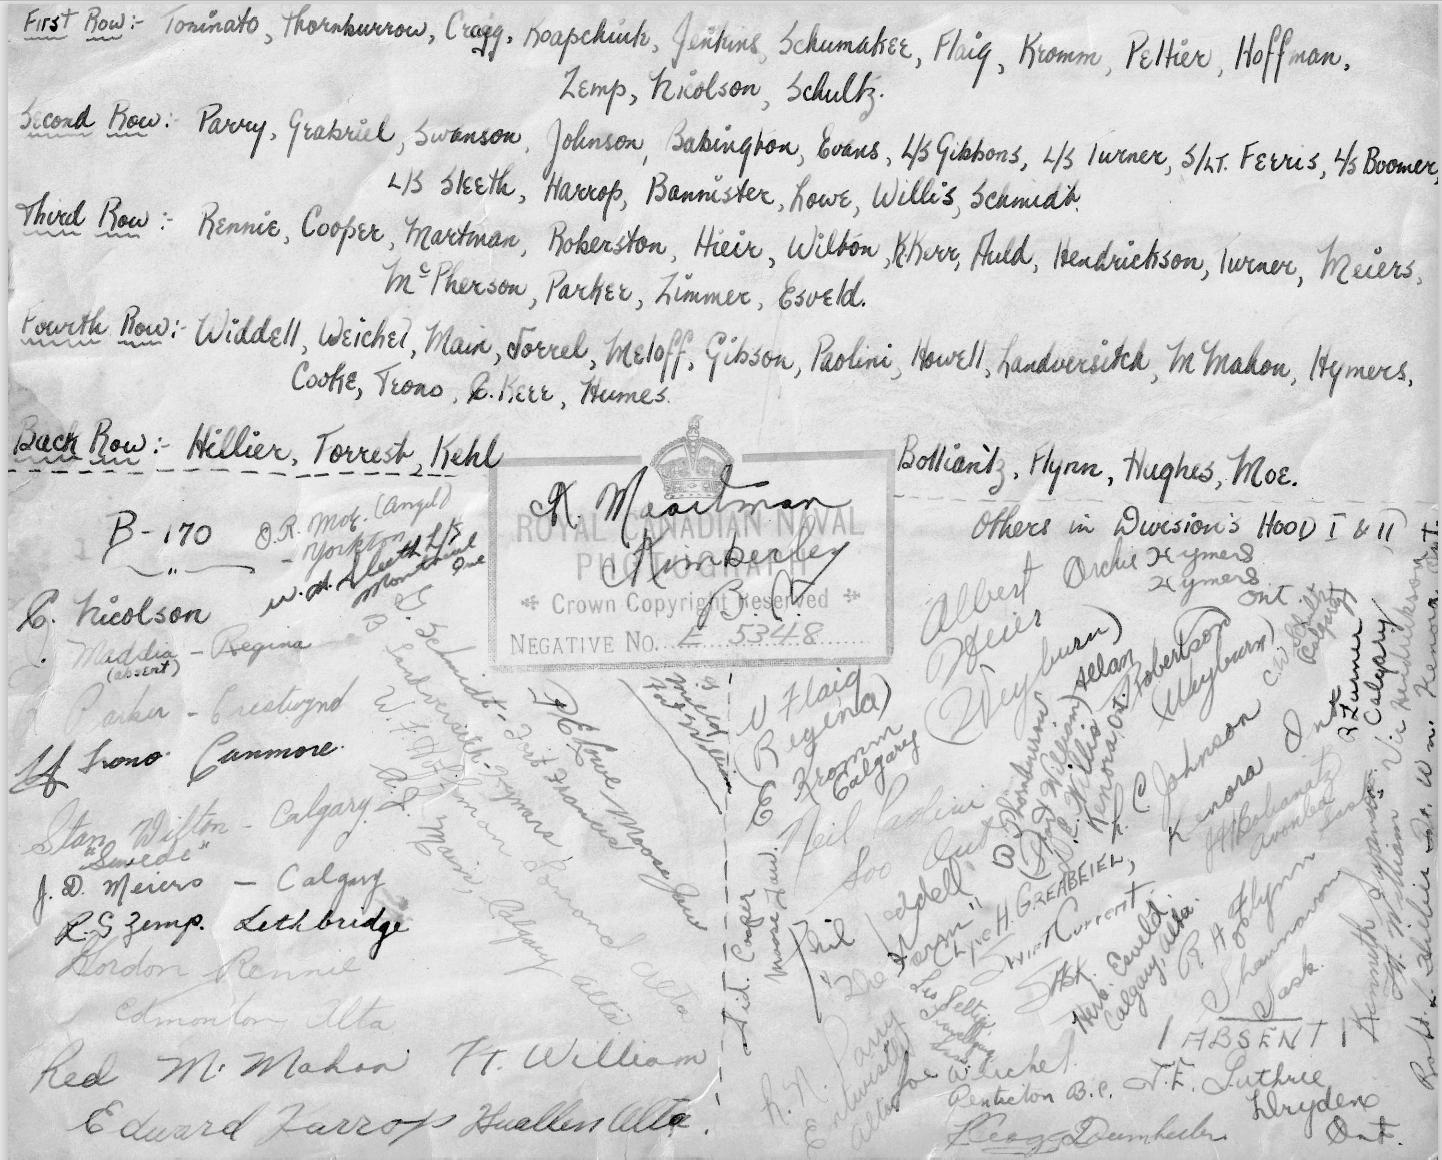 First Row:- Toninato, Thornburrow, Cragg, Koapchuk, Jenkins, Schumaker, Flaig, Kromm, Peltier, Hoffman,
Zemp, Nicolson, Schultz.
Second Row:- Parry, Grabriel, Swanson, Johnson, Babington, Evans, L/S Gibbons, L/S Turner, S/Lt. Ferris, L/S Boomer,
L/S Sleeth, Harrop, Bannister, Lowe, Willis, Schmidt.
Third Row:- Rennie, Cooper, Martman, Roberston, Hieir, Wilton, K.Kerr, Auld, Hendrickson, Turner, Meiers,
McPherson, Parker, Zimmer, Esveld.
Fourth Row:- Widdell, Weichel, Main, Jorrel, Meloff, Gibson, Paolini, Howell, Landversitch, McMahon, Hymers,
Cooke, Trono, C. Kerr, Humes.
Back Row:- Hillier, Torrest, Kehl
Bolliantz, Flynn, Hughes, Moe.
Others in Division's Hood I & II
B-170
O.R. Moe. (Angel)
- Yorkton
W. H. Sleeth L/S
Montreal
Que
C. Nicolson
- Regina
(absent)
Parker - Crestwynd
Trono Canmore.
Stan Wilton - Calgary
"Swede"
J. D. Meiers - Calgary
R.G Zemp. Lethbridge
Gordon Rennie
Edmonton Alta
Red McMahon Ft. William
Edward Harrop Huallen Alta.
G. Schmidt - Fort Frances
B Landversitch - Hymers
W. F. Hoffman Ormond Alta
A. J. Main, Calgary Alta
E Lowe Moose Jaw
K. Maartman
Kimberley
B C
ROYAL CANADIAN NAVAL
PHOTOGRAPH
Crown Copyright Reserved
NEGATIVE NO. E 5348
Fort William
V Flaig
(Regina)
Kromm
Calgary
Neil Paolini
Soo Ont
Sid. Cragg
Moose Jaw.
Phil Widdell
"The Worm"
Les Peltier
R. N. Parry
Entwistle
Alta
Joe Weichel
Penticton B.C.
Albert
Heier
(Weyburn)
Archie Hymers
Hymers
Ont
Allan Robertson
(Weyburn)
D Thornburrow
(Fort William)
C. Willis
Kenora, Ont.
L. C. Johnson
Kenora Ont
C.W. Schultz
Calgary
R Turner
Calgary
Vic Hendrikson
Robt. L. Hillier
Kenora. Ont.
Kenneth Swanson
Ft. William
H Bolianatz
Avonlea
Sask
Lyle H. Greabeiel,
Swift Current
Sask.
Herb. Esveld.
Calgary, Alta.
R. H. Flynn
Shaunavon
Sask.
ABSENT
J.E. Guthrie
Dryden
Ont.